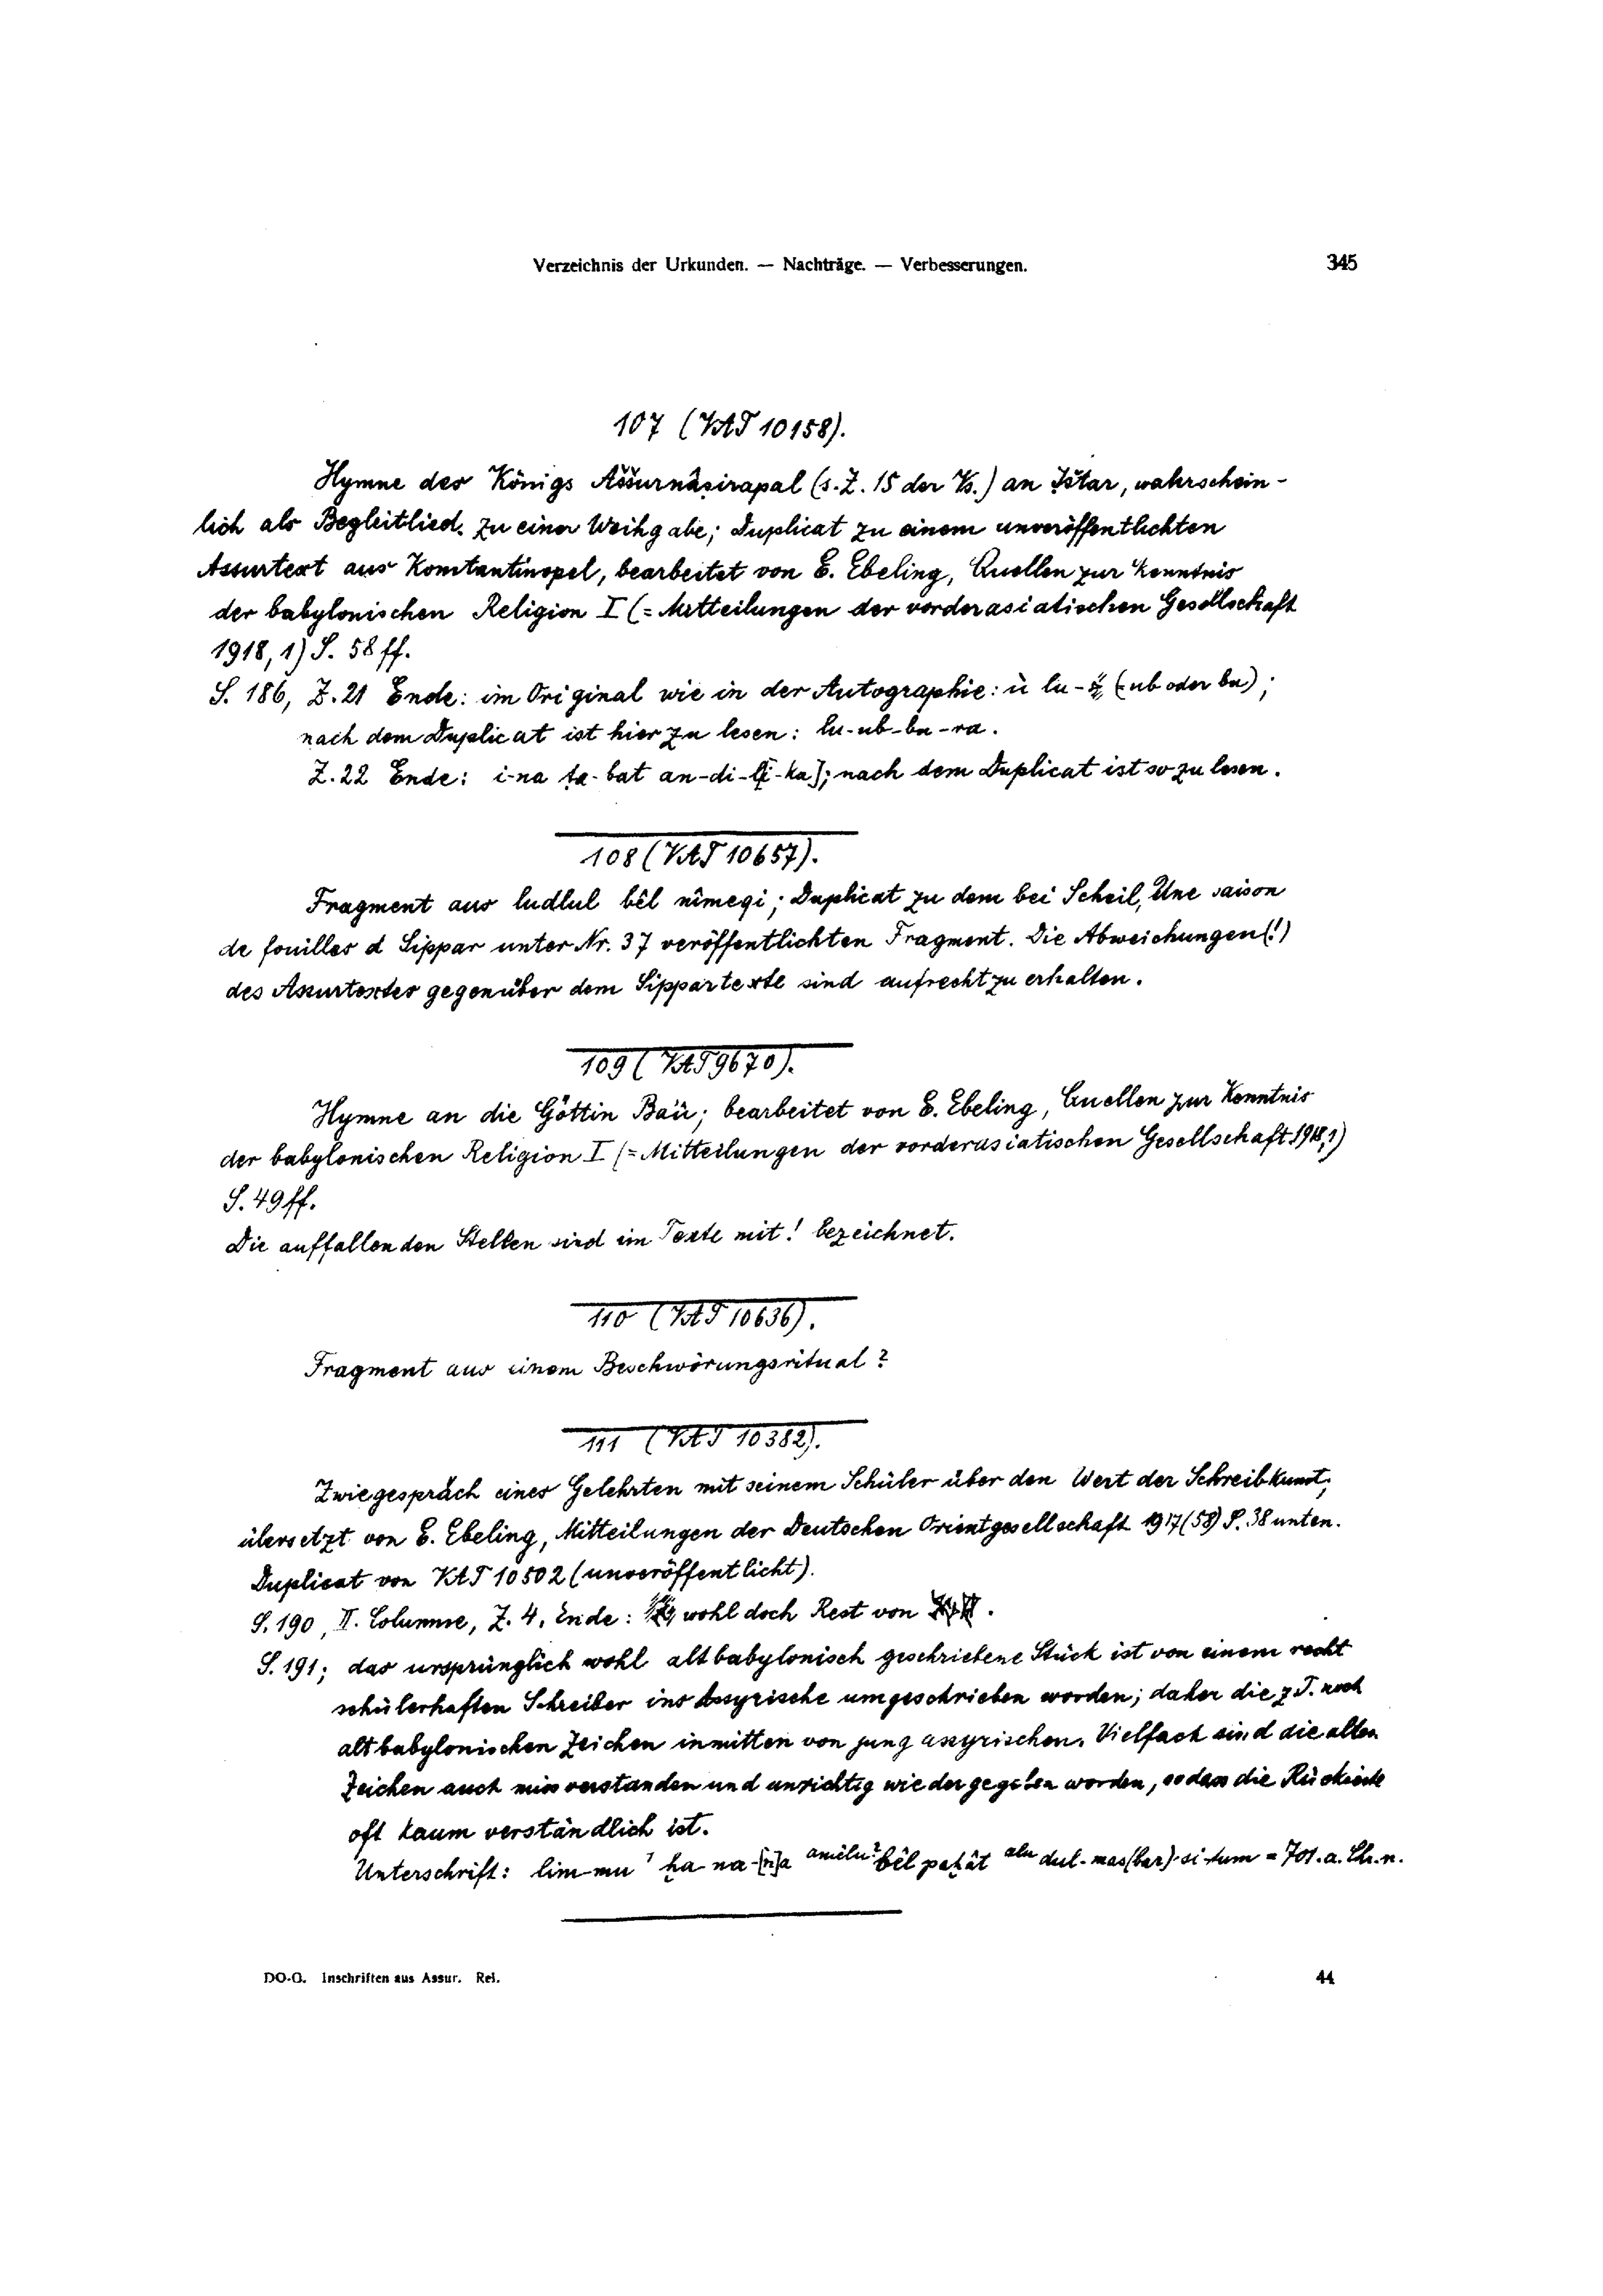 Verzeichnis der Urkunden. — Nachträge. — Verbesserungen. 345
107 (VAT 10158).
Hymne des Königs Aššurnâṣirapal (s. Z. 15 der Vs.) an Ištar, wahrschein-
lich als Begleitlied zu einer Weihgabe; Duplicat zu einem unveröffentlichten
Assurtext aus Konstantinopel, bearbeitet von E. Ebeling, Quellen zur Kenntnis
der babylonischen Religion I (= Mitteilungen der vorderasiatischen Gesellschaft
1918, 1) S. 58 ff.
S. 186, Z. 21 Ende: im Original wie in der Autographie: ù lu- (ub oder bu);
nach dem Duplicat ist hier zu lesen: lu-ub-bu-ra.
Z. 22 Ende: i-na ṭa-bat an-di-l[i-ka]; nach dem Duplicat ist so zu lesen.
108 (VAT 10657).
Fragment aus ludlul bêl nîmeqi; Duplicat zu dem bei Scheil, Une saison
de fouilles d Sippar unter Nr. 37 veröffentlichten Fragment. Die Abweichungen(!)
des Assurtextes gegenüber dem Sippartexte sind aufrecht zu erhalten.
109 (VAT 9670).
Hymne an die Göttin Baü; bearbeitet von E. Ebeling, Quellen zur Kenntnis
der babylonischen Religion I (= Mitteilungen der vorderasiatischen Gesellschaft 1918,1)
S. 49 ff.
Die auffallenden Stellen sind im Texte mit ! bezeichnet.
110 (VAT 10636).
Fragment aus einem Beschwörungsritual?
111 (VAT 10382).
Zwiegespräch eines Gelehrten mit seinem Schüler über den Wert der Schreibkunst,
übersetzt von E. Ebeling, Mitteilungen der Deutschen Orientgesellschaft 1917 (58) S. 38 unten.
Duplicat von VAT 10502 (unveröffentlicht).
S. 190, II. Columne, Z. 4, Ende: wohl doch Rest von .
S. 191; das ursprünglich wohl altbabylonisch geschriebene Stück ist von einem recht
schülerhaften Schreiber ins Assyrische umgeschrieben worden; daher die z.T. noch
altbabylonischen Zeichen inmitten von jungassyrischen. Vielfach sind die alten
Zeichen auch missverstanden und unrichtig wiedergegeben worden, so dass die Rückseite
oft kaum verständlich ist.
Unterschrift: lim-mu ᴵ ḫa-na-[n]a amêlu? bêl peḫât alu dul-mas(bar)-si-tum = 701. a. Chr. n.
DO-G. Inschriften aus Assur. Rel. 44